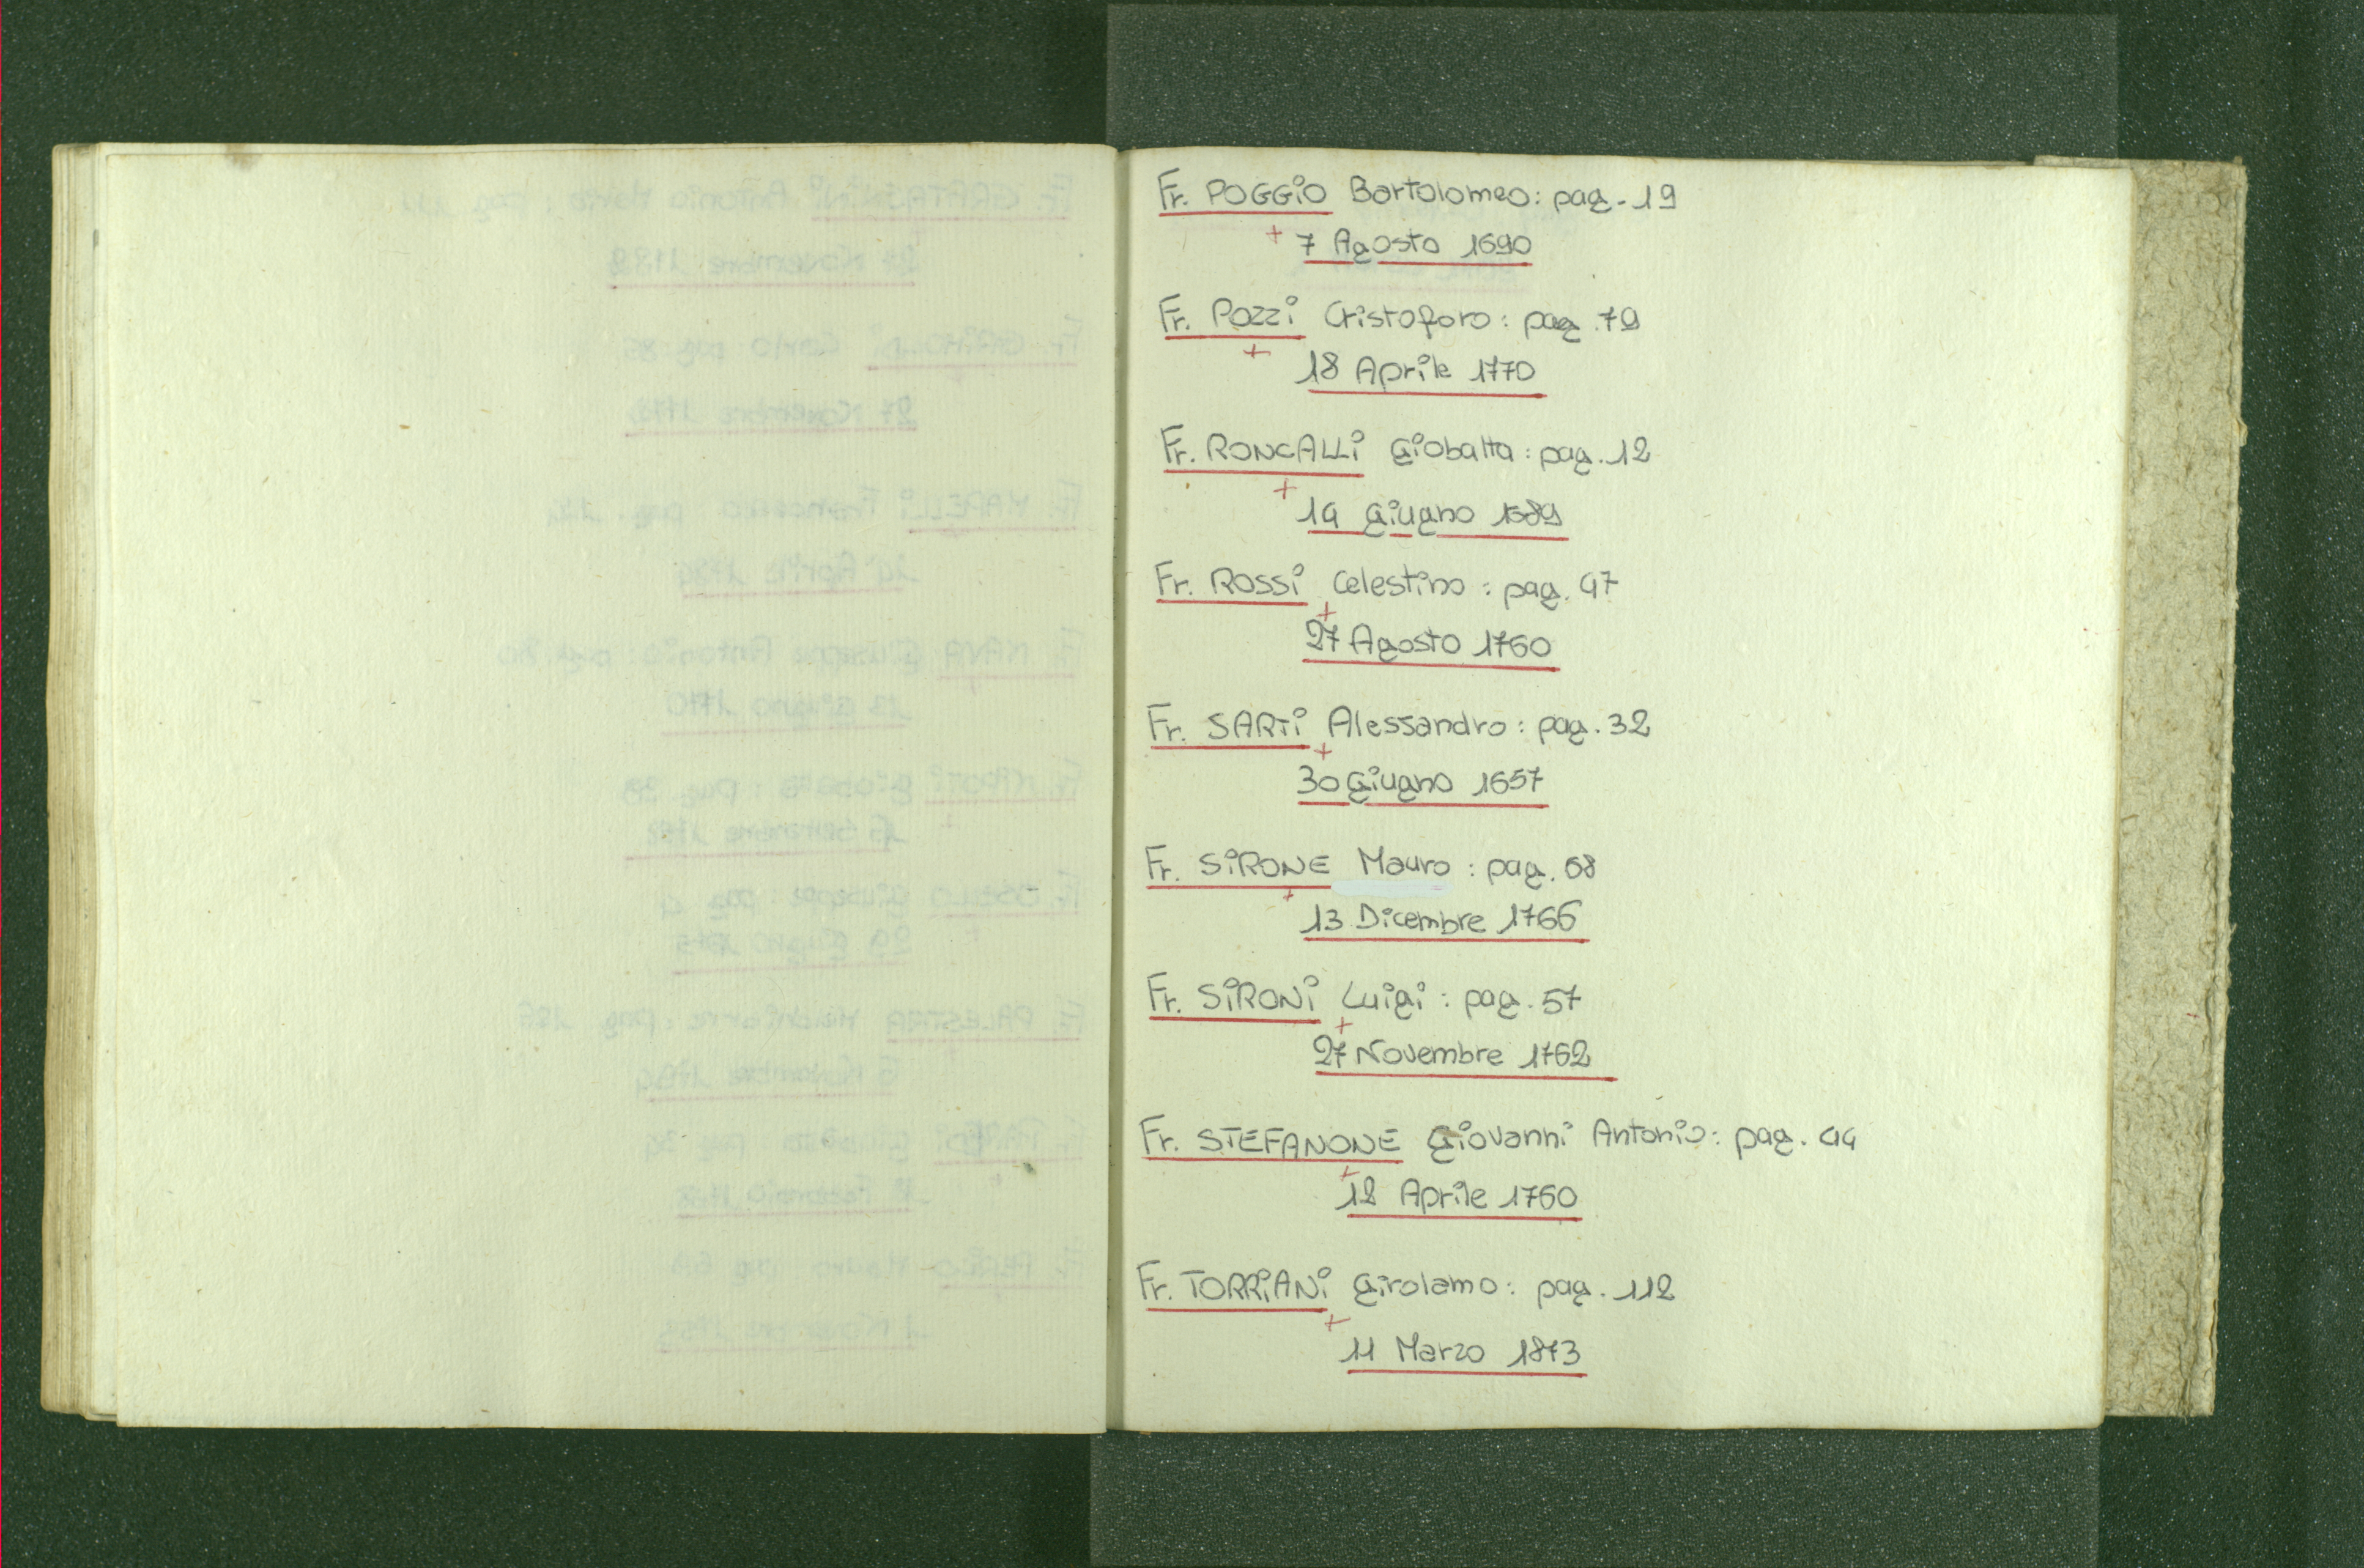 Fr. POGGiO Bartolomeo: pag. 19
+ 7 Agosto 1690
Fr. POZZi Cristoforo: pag. 79
+
18 Aprile 1770
Fr. RONCALLi Giobatta: pag. 12
+
14 Giugno 1689
Fr. ROSSi Celestino: pag. 47
+
27 Agosto 1760
Fr. SARTi Alessandro: pag. 32
+
30 Giugno 1657
Fr. SiRONE Mauro: pag. 68
+
13 Dicembre 1766
Fr. SiRONi Luigi: pag. 57
+
27 Novembre 1762
Fr. STEFANONE Giovanni Antonio: pag. 44
+
12 Aprile 1760
Fr. TORRiANi Girolamo: pag. 112
+
11 Marzo 1873